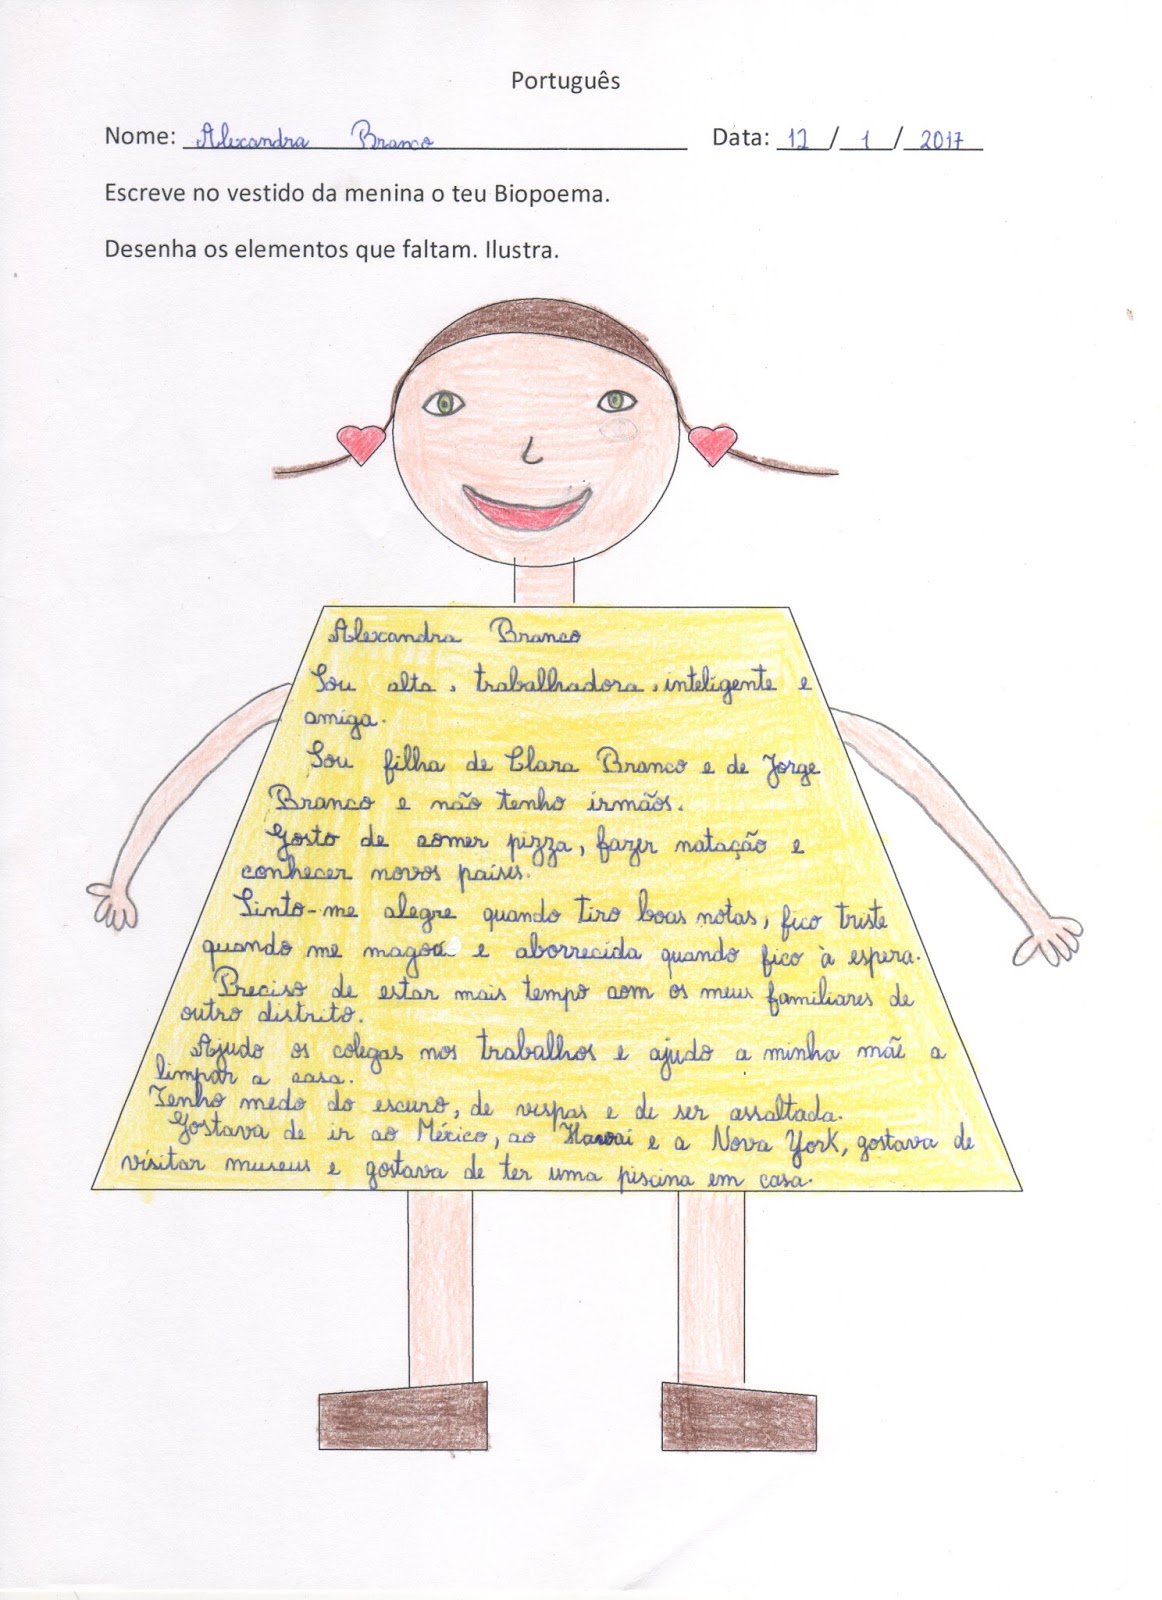 Português
Nome: Alexandra Branco Data: 12/1/2017
Escreve no vestido da menina o teu Biopoema.
Desenha os elementos que faltam. Ilustra.
Alexandra Branco
Sou alta, trabalhadora, inteligente e
amiga.
Sou filha de Clara Branco e de Jorge
Branco e não tenho irmãos.
Gosto de comer pizza, fazer natação e
conhecer novos países.
Sinto-me alegre quando tiro boas notas, fico triste
quando me magoa e aborrecida quando fico à espera.
Preciso de estar mais tempo com os meus familiares de
outro distrito.
Ajudo os colegas nos trabalhos e ajudo a minha mãe a
limpar a casa.
Tenho medo do escuro, de vespas e de ser assaltada.
Gostava de ir ao México, ao Hawai e a Nova York, gostava de
visitar museus e gostava de ter uma piscina em casa.